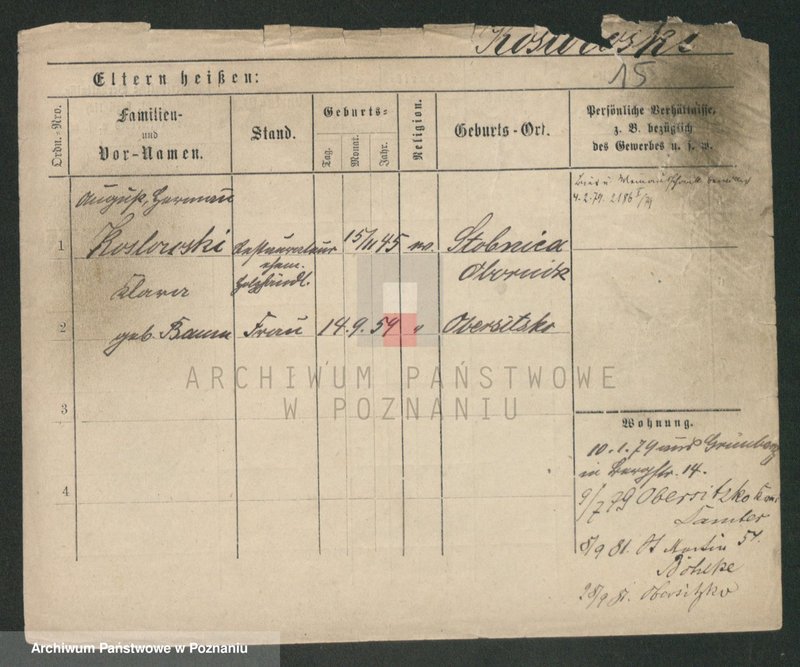 Koslowski
15
Eltern heißen:
Ordn.-Nro.
Familien-
und
Vor-Namen.
Stand.
Geburts-
Tag.
Monat.
Jahr.
Religion.
Geburts-Ort.
Persönliche Verhältnisse,
z. B. bezüglich
des Gewerbes u. s. w.
August, Herman
4.2.79. 2186
1 Koslowski Restaurateur 15/11 45 ev. Stobnica
ehem. Obornik
Holzhändl.
Klara
2 geb. Baum Frau 14. 9. 54 " Obersitzko
ARCHIWUM PAŃSTWOWE
W POZNANIU
3
Wohnung.
10.1.79 aus Grünberg
in Bergstr. 14.
4
9/7 79 Obersitzko
Samter
8/9 81. St Martin 54.
Böhlke
28/9 81. Obersitzko
Archiwum Państwowe w Poznaniu